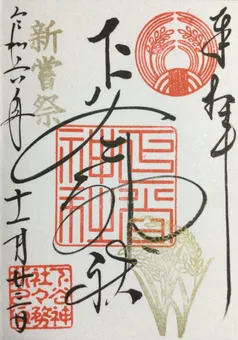 奉拝
下谷神社
下谷
神社
新嘗祭
令和六年十一月廿三日
下谷神
社々務